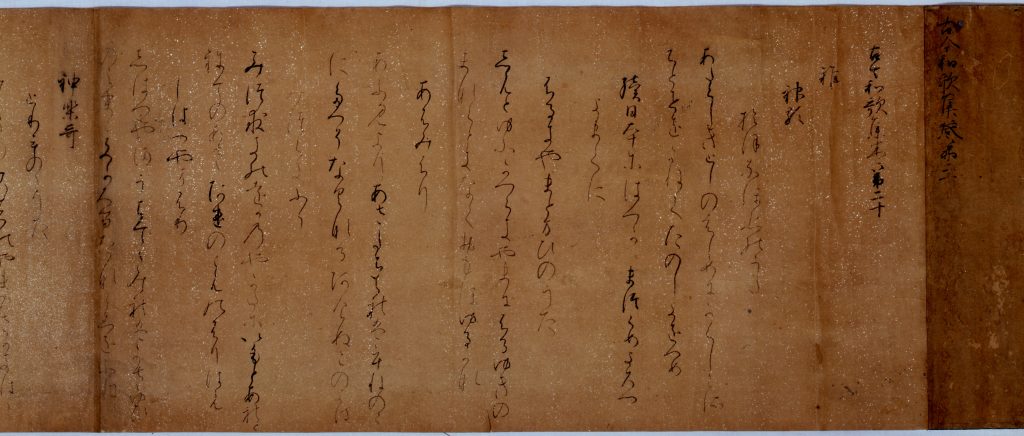 古今和歌集巻第二十
雑
神歌
おほなほひのうた
あたらしきとしのはしめにかくしこそ
ちとせをかねてたのしきをつめ
続日本紀にはつかへまつらめよろつ
よまてに
ふるきやまとまひのうた
しもとゆふかつらきやまにふるゆきの
まなくときなくおもほゆるかな
あふみふり
あふみよりあさたちくれはうねのの
にたつそなくなるあけぬこのよは
みつくきふり
みつくきのをかのやかたにいもとあれと
ねてのあさけのしものふりはも
しはつやまふり
しはつやまうちいててみれはかさゆひの
しまこきかくるたななしをふね
神楽哥
とりもののうた